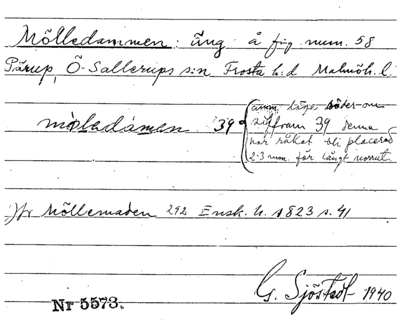 Mölledammen: äng å fig num. 58
Pärup, Ö-Sallerups s:n Frosta h:d Malmöh. l.
möledámen 39 (anm. läge söder om
siffran 39 denna
har råkat bli placerad
2-3 mm. för långt norrut.
Jfr Möllemaden 292 Ensk. h. 1823 s. 41
G. Sjöstedt 1940
Nr 5573.